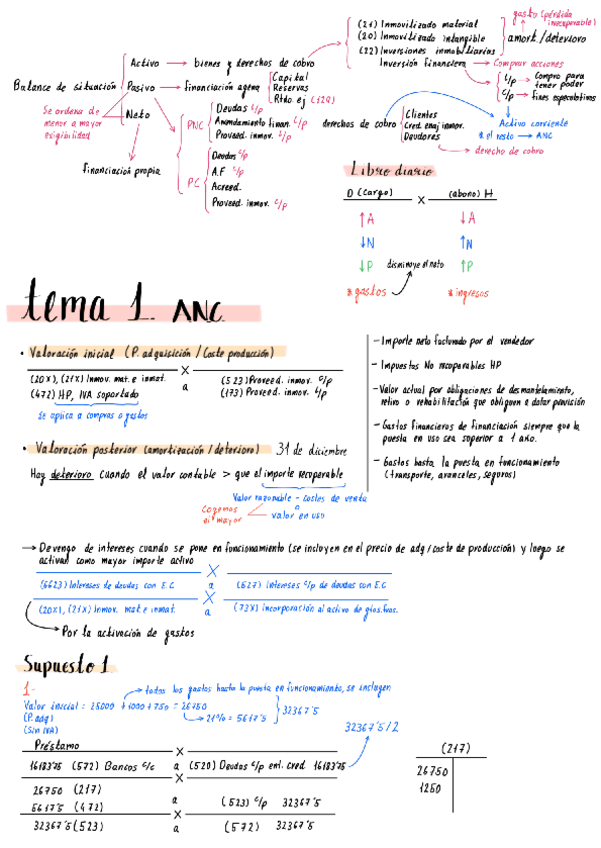 (21) Inmovilizado material
(20) Inmovilizado intangible
(22) Inversiones inmobiliarias
gasto (pérdida irrecuperable)
amort./deterioro
Inversión financiera → Comprar acciones
L/p → Compro para tener poder
C/p → fines especulativos
Balance de situación
Activo → bienes y derechos de cobro
Pasivo → financiación ajena
Neto
Capital
Reservas
Rtdo ej (129)
Se ordena de menor a mayor exigibilidad
financiación propia
PNC
Deudas L/p
Arrendamiento finan. L/p
Proveed. inmov. L/p
PC
Deudas C/p
A.F C/p
Acreed.
Proveed. inmov. C/p
derechos de cobro
Clientes
Cred. enaj inmov.
Deudores
Activo corriente
→ el resto → ANC
→ derecho de cobro
Libro diario
D (cargo) x (abono) H
↑A ↓A
↓N ↑N
↓P disminuye el neto ↑P
* gastos * ingresos
tema 1. ANC
• Valoración inicial (P. adquisición / Coste producción)
x
(20X), (21X) Inmov. mat. e inmat.
(472) HP, IVA soportado
a
(523) Proveed. inmov. C/p
(173) Proveed. inmov. L/p
Se aplica a compras o gastos
- Importe neto facturado por el vendedor
- Impuestos No recuperables HP
- Valor actual por obligaciones de desmantelamiento, retiro o rehabilitación que obliguen a dotar provisión
- Gastos financieros de financiación siempre que la puesta en uso sea superior a 1 año.
- Gastos hasta la puesta en funcionamiento (transporte, aranceles, seguros)
• Valoración posterior (amortización / deterioro) 31 de diciembre
Hay deterioro cuando el valor contable > que el importe recuperable
Valor razonable - costes de venta
o
Cogemos el mayor
valor en uso
→ Devengo de intereses cuando se pone en funcionamiento (se incluyen en el precio de adq / coste de producción) y luego se
activan como mayor importe activo
x
(6623) Intereses de deudas con E.C a (527) Intereses C/p de deudas con E.C
x
(20X), (21X) Inmov. mat e inmat. a (73X) Incorporación al activo de gtos. fros.
→ Por la activación de gastos
Supuesto 1
1-
→ todos los gastos hasta la puesta en funcionamiento, se incluyen
Valor inicial = 25000 + 1000 + 750 = 26750
(P. adq)
(Sin IVA)
→ 21% = 5617'5
32367'5
32367'5/2
Préstamo x
16183'75 (572) Bancos C/c a (520) Deudas C/p ent. cred. 16183'75
x
26750 (217)
5617'5 (472) a (523) C/p 32367'5
x
32367'5 (523) a (572) 32367'5
(217)
26750
1250